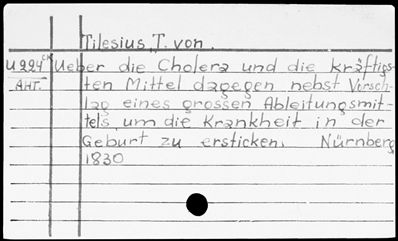 Tilesius, T. von.
U 224 ch Ueber die Cholera und die kräftigs-
AHT. ten Mittel dagegen nebst Vorsch-
lag eines grossen Ableitungsmit-
tels, um die Krankheit in der
Geburt zu ersticken. Nürnberg
1830